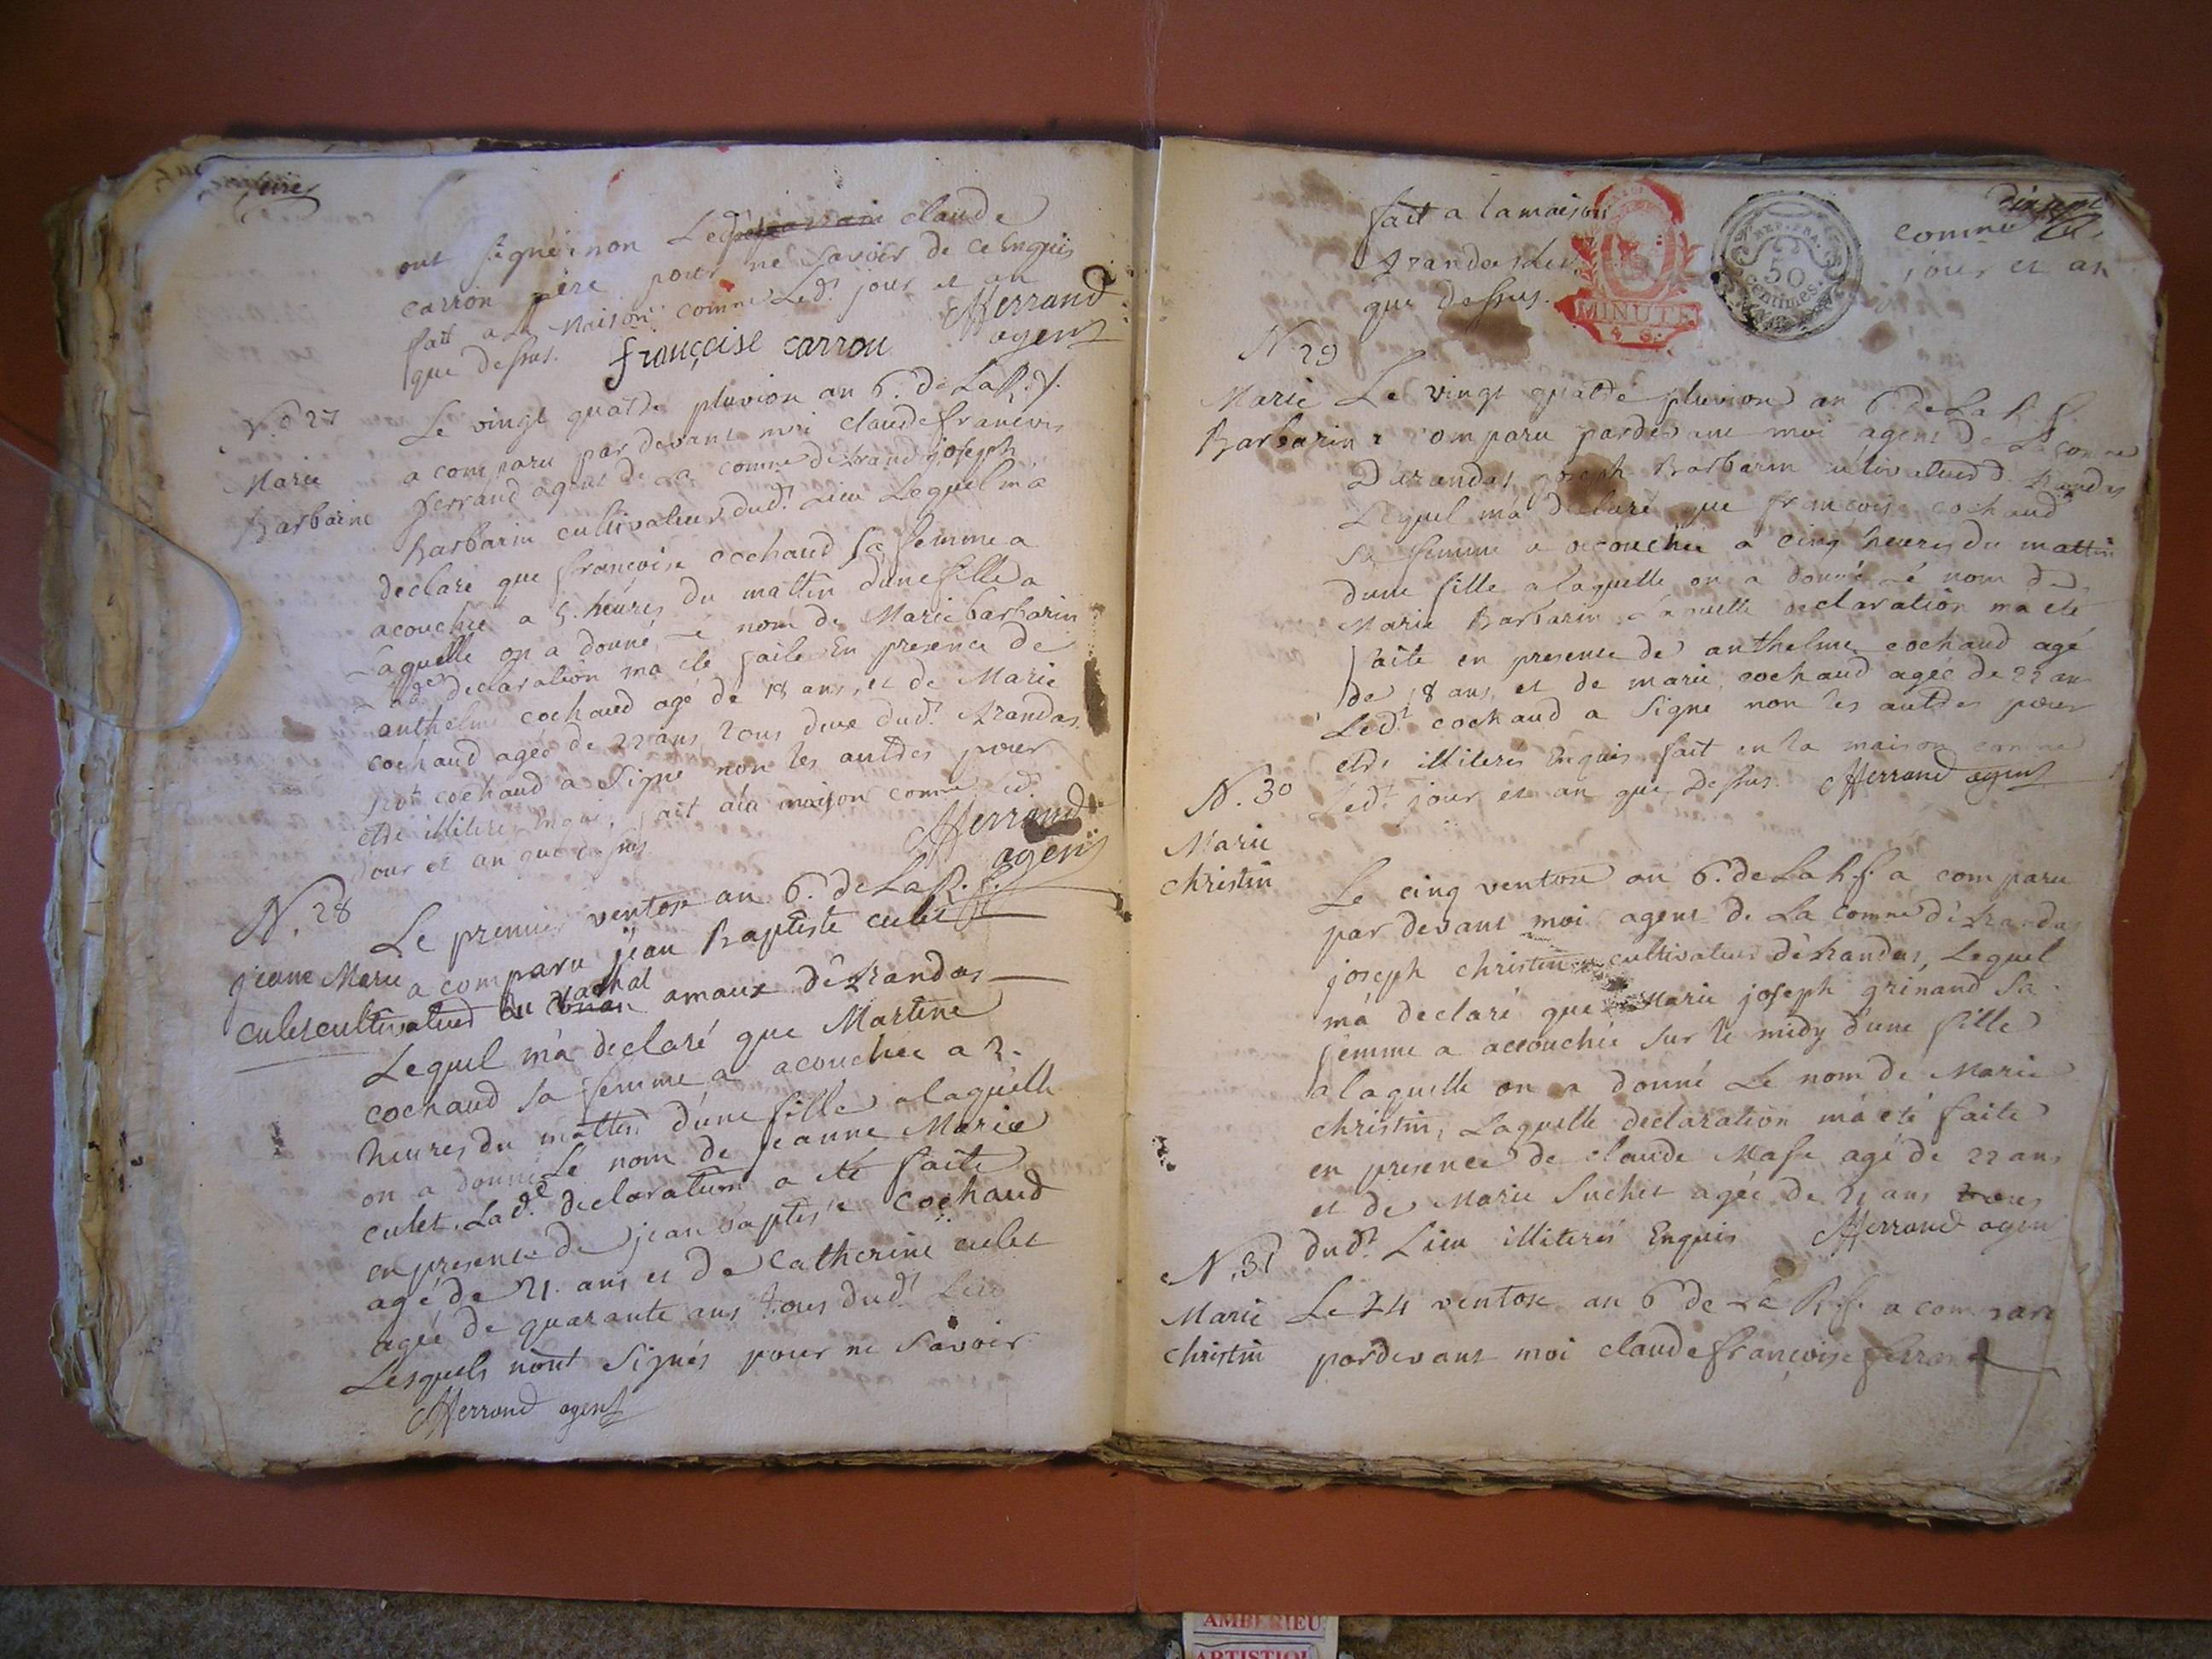 ont signé i non Led claude
carron père pour ne savoir de ce Enquis
fait a la Maison comne Led.t jour et an
que dessus. françoise carron fferrand
agent
N.o 27
Marie
Barbarine
Le vingt quatre pluvion an 6. de La R. f.
a comparu par devant moi claude francois
ferrand agent de La comne d'arandas joseph
Barbarin cultivateur dud.t Lieu Lequel m'a
declaré que francoise cochaud sa femme a
acouchée a 5. heures du mattin d'une fille a
Laquelle on a donné Le nom de Marie barbarin
Lad.e declaration ma ete faite En presence de
anthelme cochaud agé de 18 ans, et de Marie
cochaud agée de 22 ans tous deux dud.t Arandas
cochaud a Signé non les autres pour
etre illiteres Enquis, fait a la maison comne Led.t
jour et an que dessus fferrand
agent
N. 28
jeane Marie
culet
Le premier ventose an 6. de La R. f.
a comparu jean Baptiste culet
cultivateur du rachat amaux d'Arandas
Lequel m'a declaré que Martine
cochaud sa femme a acouchee a 2.
heures du mattin d'une fille a laquelle
on a donné Le nom de jeanne Marie
culet. Lad.e declaration a eté faite
en presence de jean baptiste cochaud
agé de 21. ans et de catherine culet
agée de quarante ans tous dud.t Lieu
Lesquels n'ont Signés pour ne Savoir
fferrand agent
fait a la maison comne
Arandas Led. jour et an
que dessus.
MINUTE
REP. FRA.
50
centimes.
N. 29
Marie
Barbarin
Le vingt quatre pluviond an 6. de La R. f.
a comparu pardevant moi agent de La comne
D'arandas joseph Barbarin cultivateur d. Arandas
Lequel m'a declaré que francoise cochaud
sa femme a acouchée a cinq heures du mattin
dune fille a laquelle on a donné Le nom de
Marie Barbarin Laquelle declaration ma eté
faite en presence de anthelme cochaud agé
de 18 ans, et de marie cochaud agée de 22 ans
Led.t cochaud a Signé non les autres pour
etre illiterés Enquis fait en la maison comne
Led.t jour et an que Dessus. fferrand agent
N. 30
Marie
christin
Le cinq ventose an 6. de La R. f. a comparu
par devant moi agent de La comne d'Arandas
joseph christin cultivateur d'Arandas, Lequel
m'a declaré que Marie joseph grinand Sa
femme a accouchée sur le midy d'une fille
a laquelle on a donné Le nom de Marie
christin, Laquelle declaration m'a eté faite
en presence de claude Mase agé de 22 ans
et de Marie Suchet agée de 21 ans tous
dud.t Lieu illiterés Enquis fferrand agent
N. 31
Marie
christin
Le 24 ventose an 6 de La R. f. a comparu
pardevant moi claude francoise ferrand
AMBERIEU